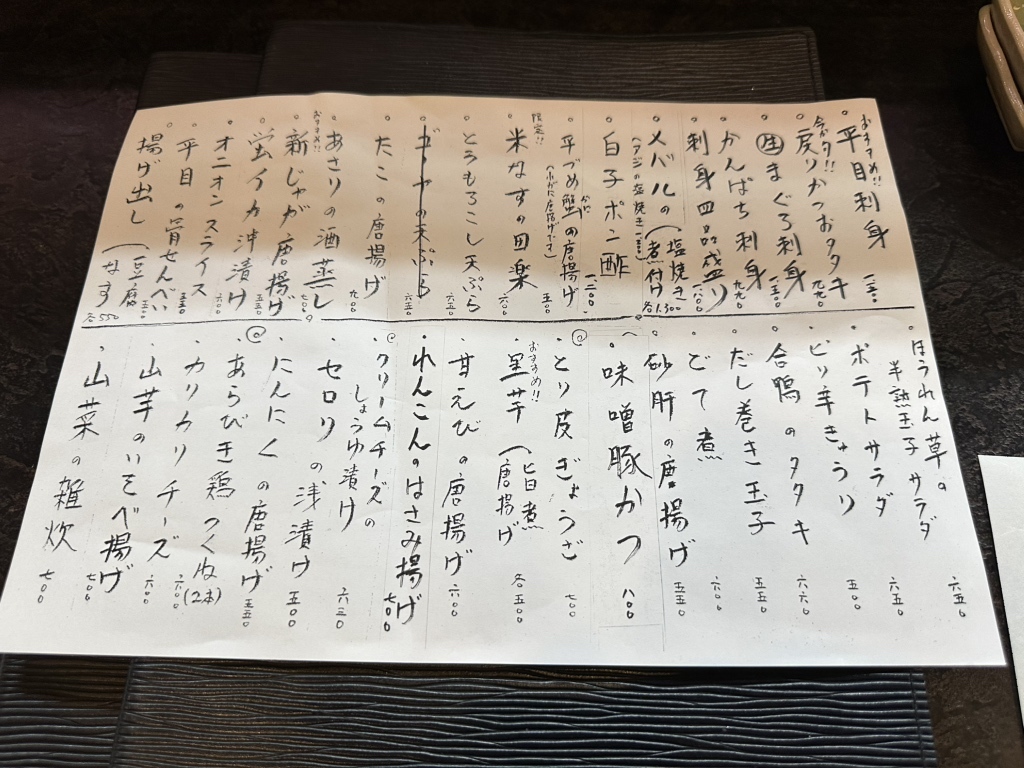 おすすめ!!
平目刺身
一二〇〇
今がダ!!
戻りかつおタタキ
九九〇
生まぐろ刺身
一二〇〇
かんぱち刺身
九九〇
刺身四品盛り
一八〇〇
メバルの(塩焼き 煮付け
各1,300
(アジの塩焼き
白子ポン酢
一二〇〇
平づめ蟹の唐揚げ
かに
五〇〇
限定!!
米なすの田楽
六〇〇
とうもろこし天ぷら
六五〇
ギーヤの天ぷら
六五〇
たこの唐揚げ
九〇〇
あさりの酒蒸し
七〇〇
おすすめ!!
新じゃが唐揚げ
五五〇
蛍イカ沖漬け
オニオンスライス
平目の骨せんべい
揚げ出し(豆腐 なす
各550
ほうれん草の
半熟玉子サラダ
六五〇
ポテトサラダ
六五〇
ピリ辛きゅうり
五〇〇
合鴨のタタキ
六六〇
だし巻き玉子
五五〇
どて煮
六〇〇
砂肝の唐揚げ
五五〇
味噌豚かつ
八〇〇
とり皮ぎょうざ
七〇〇
おすすめ!!
里芋(旨煮 唐揚げ
各五〇〇
甘えびの唐揚げ
六〇〇
れんこんのはさみ揚げ
七〇〇
クリームチーズの
しょうゆ漬け
セロリの浅漬け
六三〇
にんにくの唐揚げ
五〇〇
あらびき鶏つくね
(2本)
五五〇
カリカリチーズ
六〇〇
山芋のいそべ揚げ
六〇〇
山菜の雑炊
七〇〇